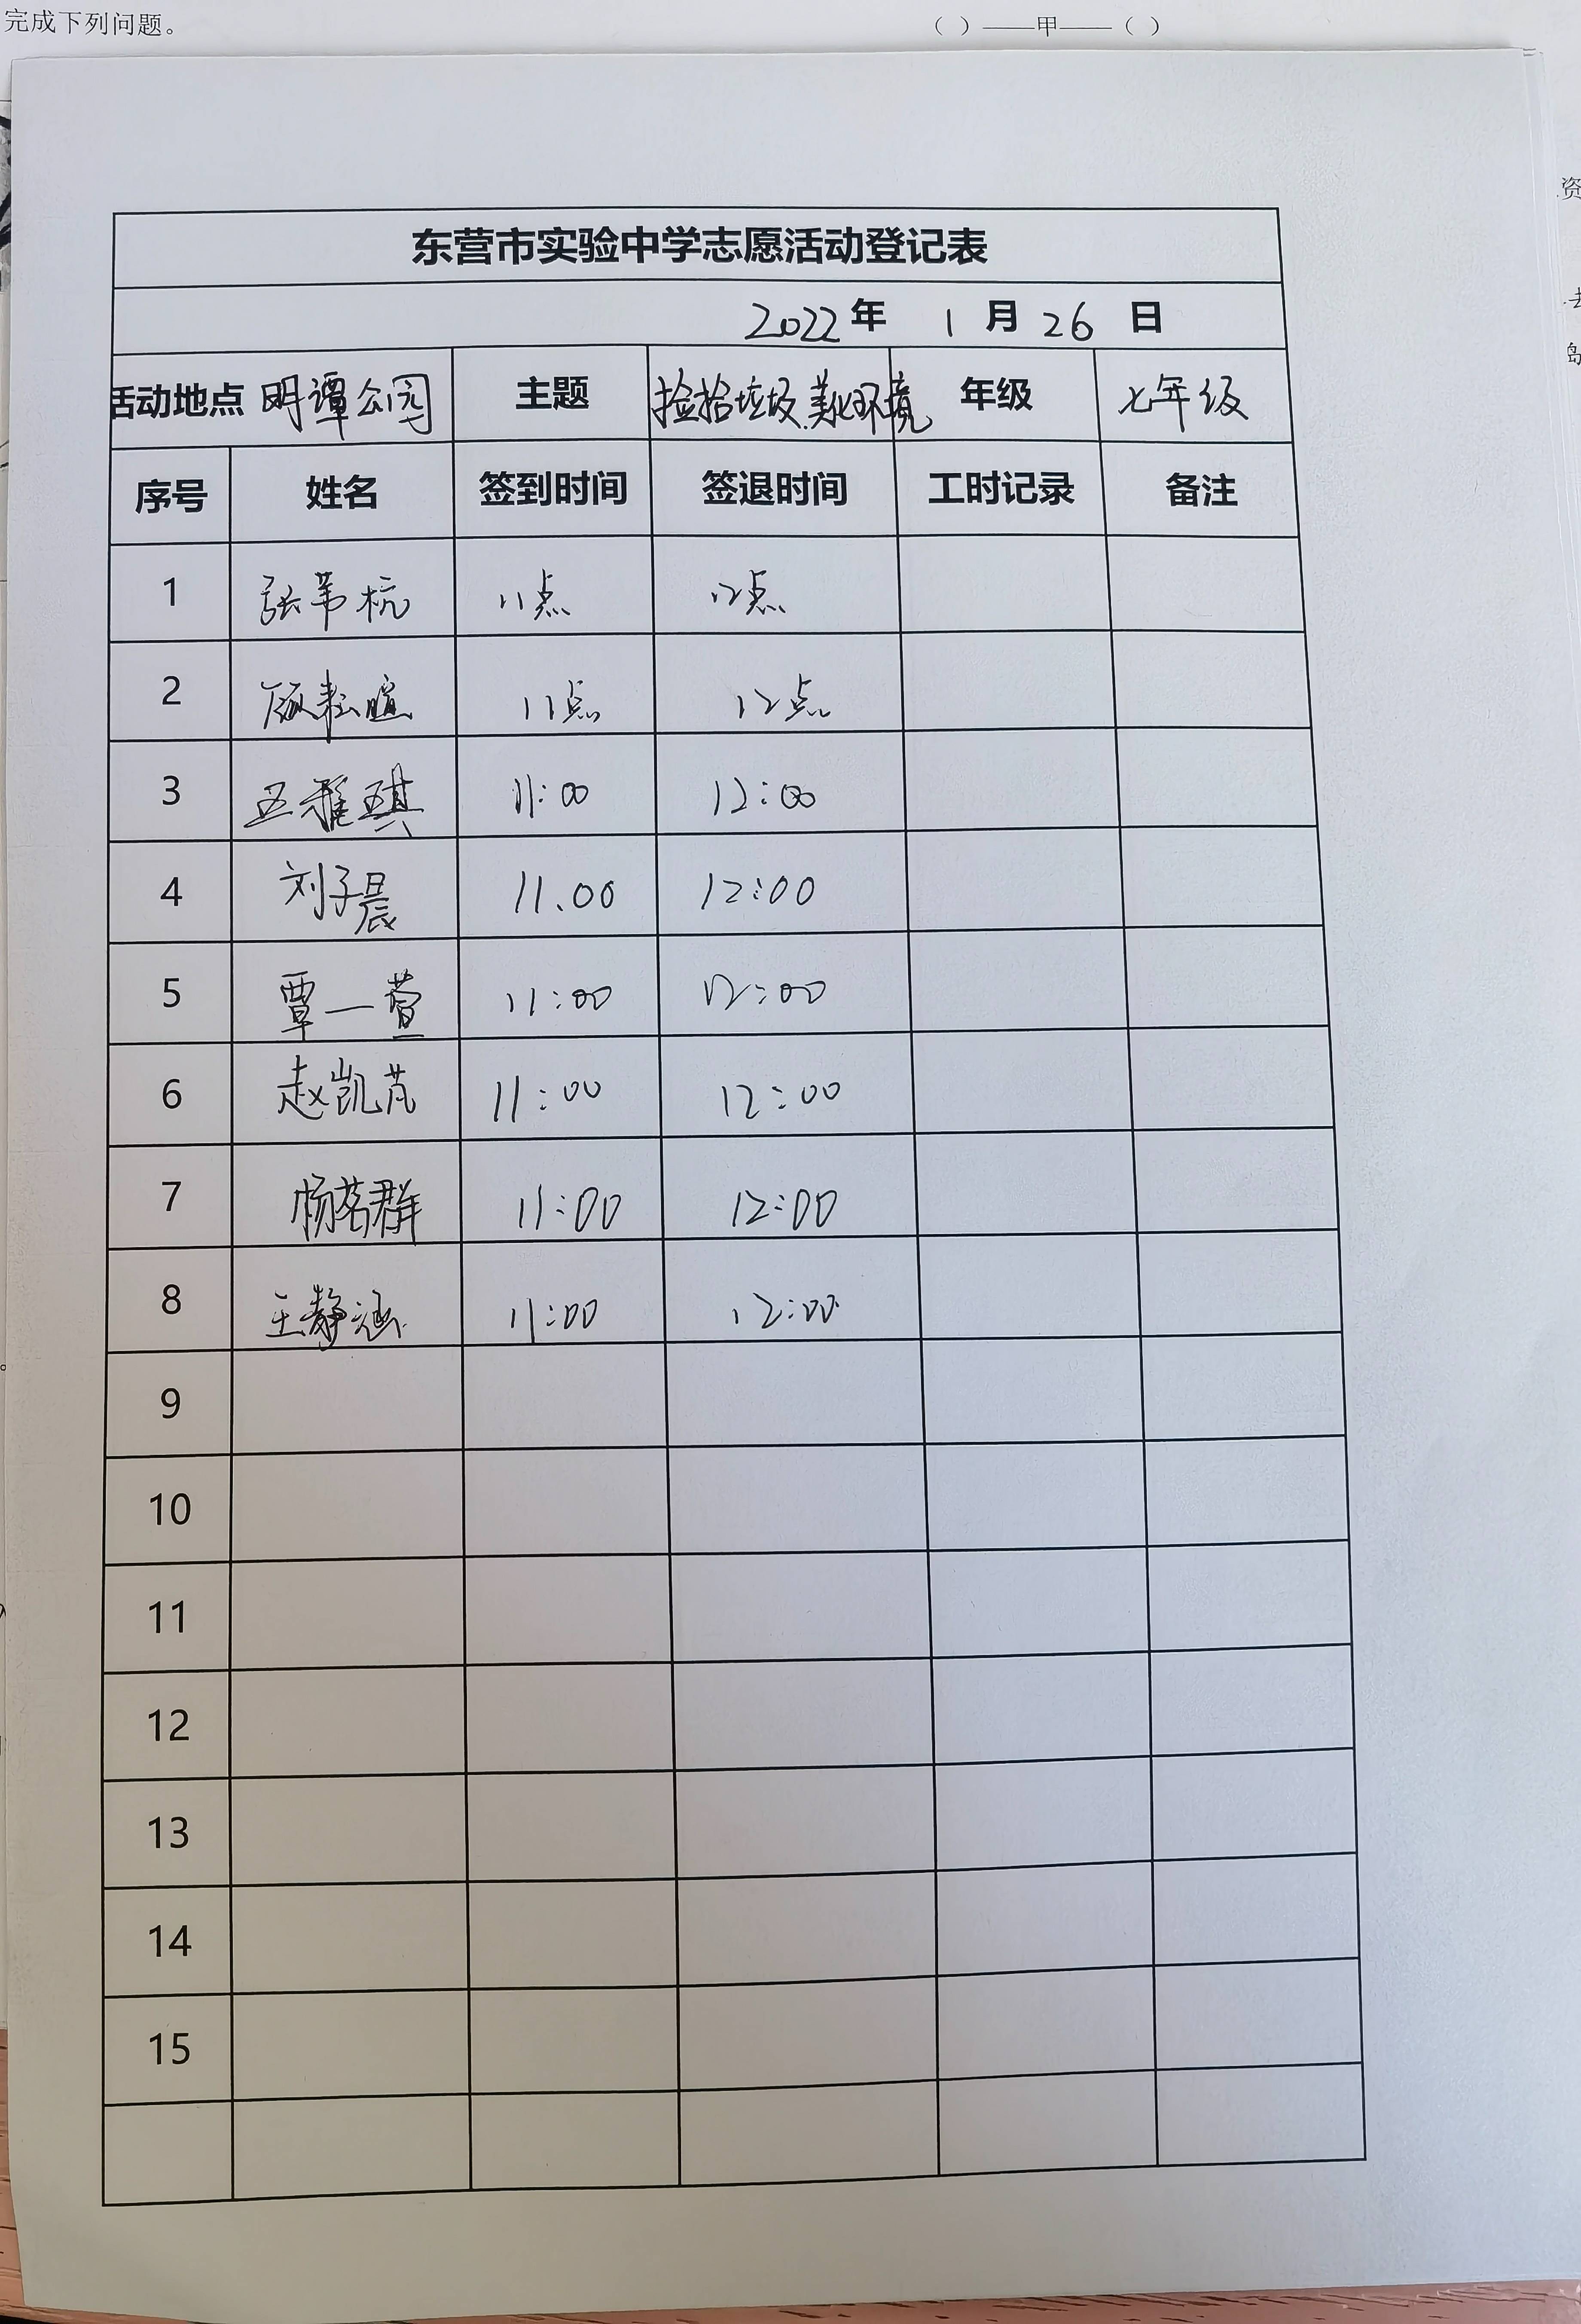 完成下列问题。 （ ）——甲——（ ）
资
东营市实验中学志愿活动登记表
2022年 1月26日
活动地点 明谭公园 主题 捡拾垃圾.美化环境 年级 七年级
序号 姓名 签到时间 签退时间 工时记录 备注
1 张芾杭 11点 12点
2 11点 12点
3 王雅琪 11:00 12:00
4 刘子晨 11.00 12:00
5 覃一萱 11:00 12:00
6 赵凯芃 11:00 12:00
7 杨茗群 11:00 12:00
8 王静涵 11:00 12:00
9
10
11
12
13
14
15